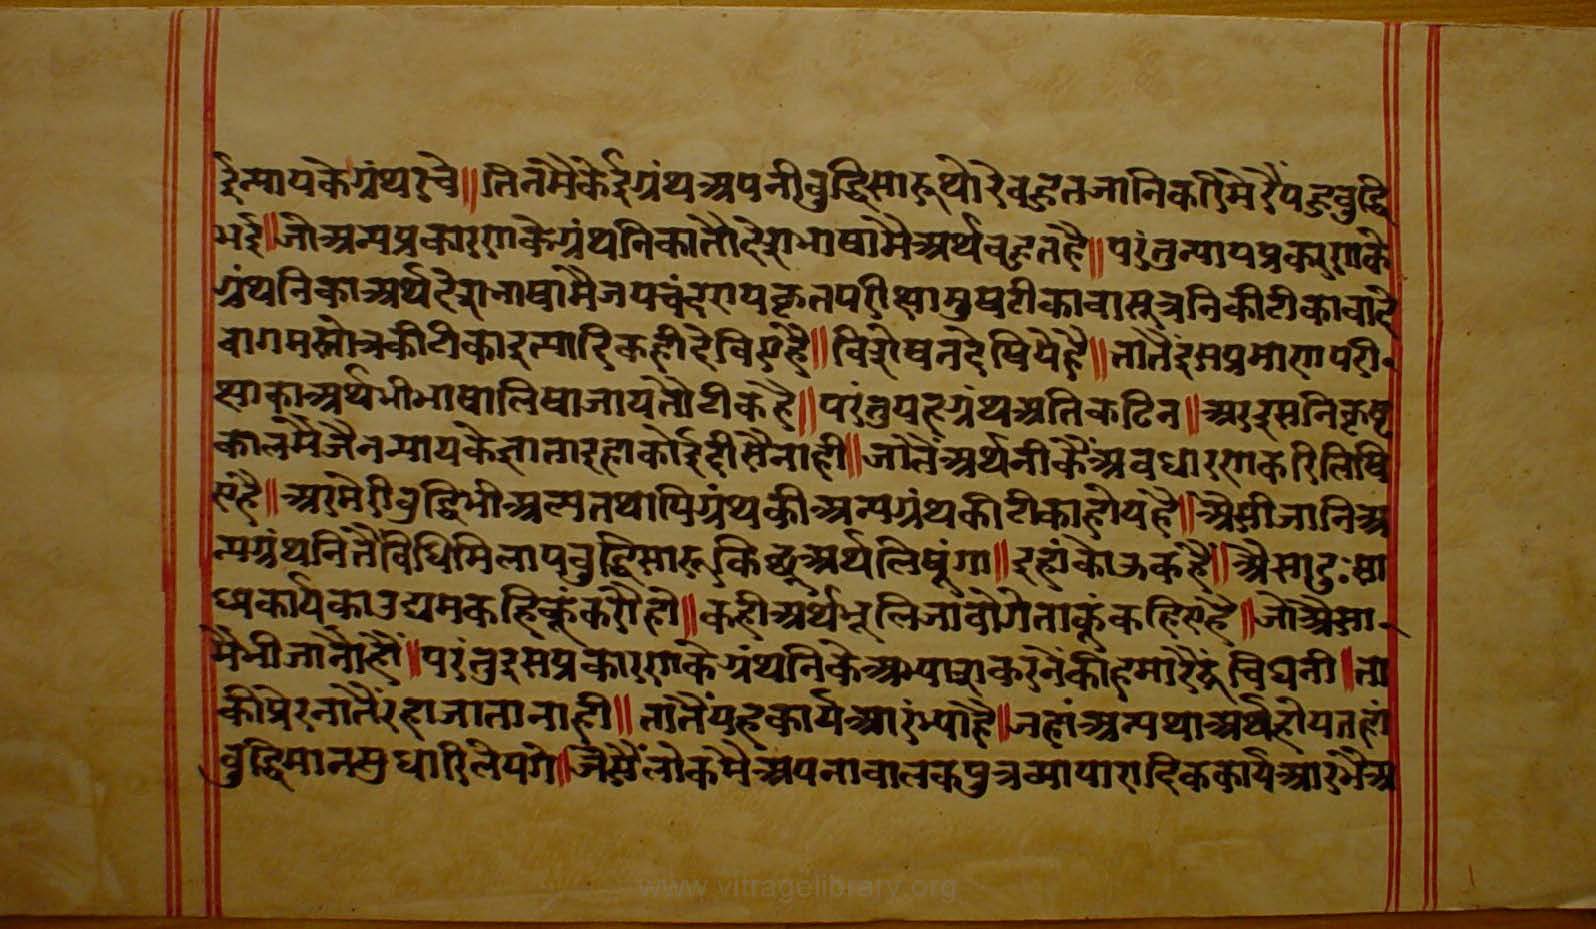 ई न्यायके ग्रंथ रचे॥ तिनमै केई ग्रंथ अपनी बुद्धि सारू थोरे बहुत जानि करि मेरैं पहु बुद्धि
भई॥ जो अन्य प्रकारणके ग्रंथनिका तौ देशभाषामै अर्थ बहुत है॥ परंतु न्याय प्रकारणके
ग्रंथनिका अर्थ देशभाषामै जयचंदराय कृत परीक्षामुष टीका वा सूत्रनिकी टीका वा दे
वागम स्तोत्रकी टीका इत्यादिक ही देषिए है॥ विशेष न देषियै है॥ तातै इस प्रमाण परी
क्षाका अर्थ भी भाषा लिषा जाय तौ ठीक है॥ परंतु यह ग्रंथ अति कठिन॥ अर इस निकृष्ट
कालमै जैन न्यायके ज्ञाता इहा कोई दीसै नाही॥ जातैं अर्थ नीकैं अवधारण करि लिषि
ए है॥ अर मेरी बुद्धि भी अल्प तथापि ग्रंथकी अन्य ग्रंथकी टीका होय है॥ अैसी जानि अ
न्य ग्रंथनितैं विधि मिलाय बुद्धि सारू किछू अर्थ लिषुंगा॥ इहां कोऊ कहैं॥ अैसा दुःसा
ध्य कार्यका उद्यम कहि कूं करौ हो॥ कही अर्थ भूलि जावोगे ताकूं कहिए है॥ जो अैसा
मै भी जानौ हौं॥ परंतु इस प्रकारणके ग्रंथनिके अभ्यास करनैंकी हमारै रुचि घनी॥ ता
की प्रेरनातैं रहा जाता नाही॥ तातैं यह कार्य आरंभ्या है॥ जहां अन्यथा अर्थ होय तहां
बुद्धिमान सुधारि लेयगे॥ जैसैं लोकमै अपना बालक पुत्र व्यापारादिक कार्य आरंभै अ
www.vitragelibrary.org